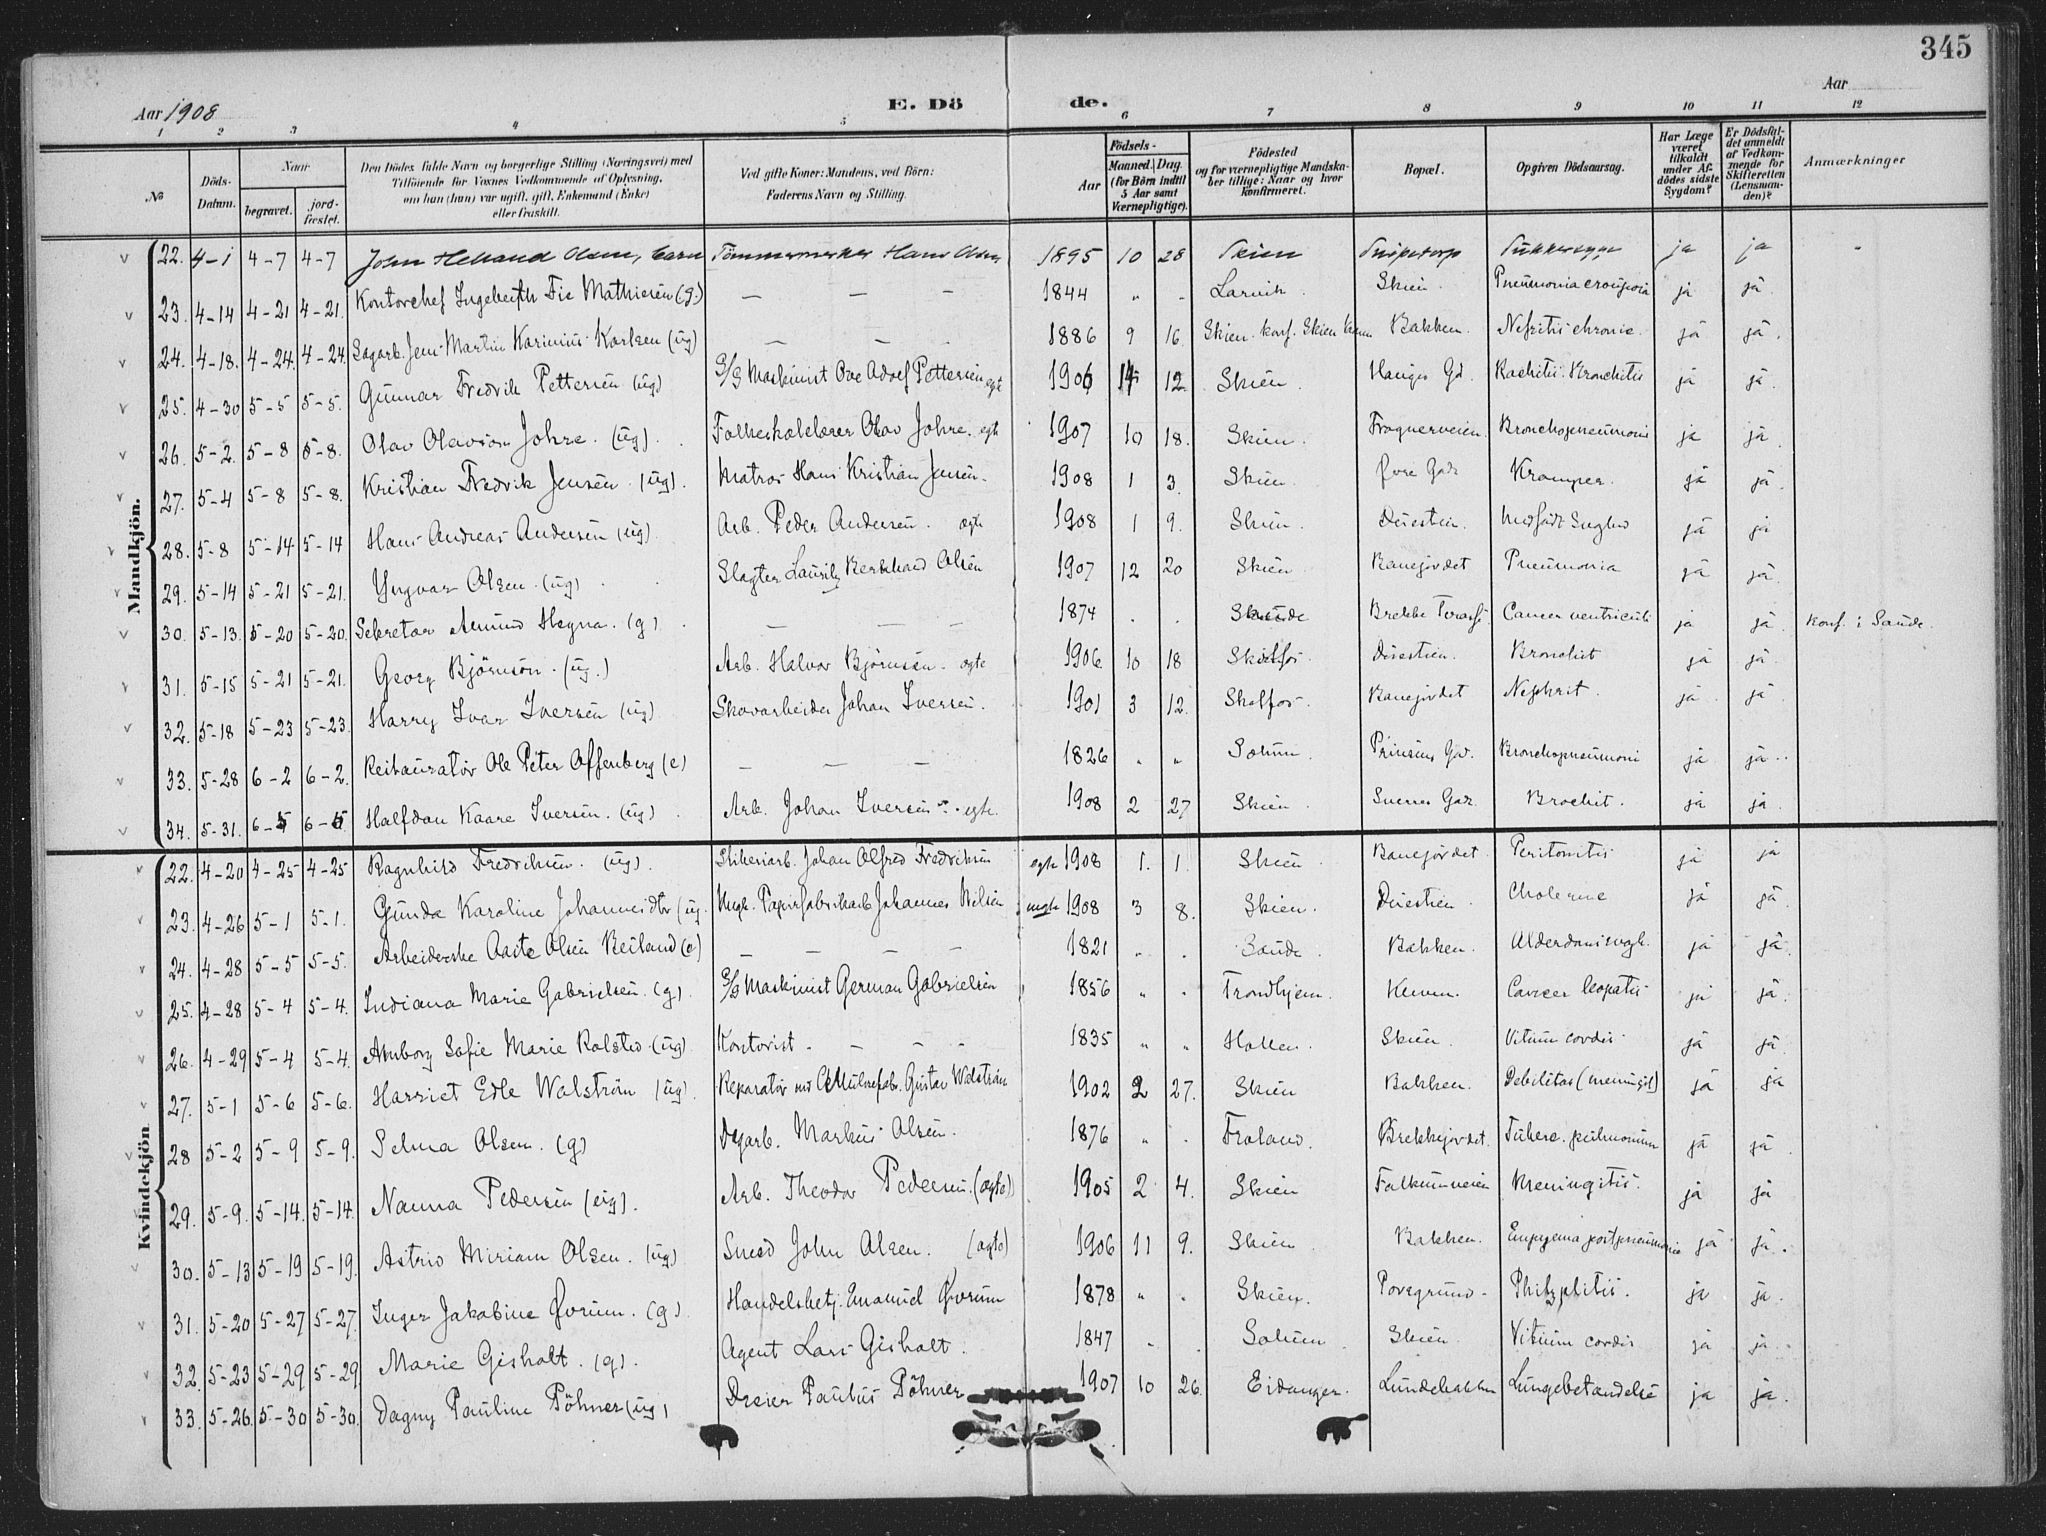 345
Aar 1908
E. Dö de.
Aar
1 2 3 4 5 6 7 8 9 10 11 12
No
Döds-Datum.
Naar
begravet.
jord-fæstet.
Den Dödes fulde Navn og borgerlige Stilling (Næringsvei) med
Tilföiende for Voxnes Vedkommende af Oplysning,
om han (hun) var ugift, gift, Enkemand (Enke)
eller fraskilt.
Ved gifte Koner: Mandens, ved Börn:
Faderens Navn og Stilling.
Födsels-
Aar
Maaned. Dag.
(for Börn indtil
5 Aar samt
Værnepligtige).
Födested
og for værnepligtige Mandskaber tillige: Naar og hvor
konfirmeret.
Bopæl.
Opgiven Dödsaarsag.
Har Læge været tilkaldt under Afdödes sidste Sygdom?
Er Dödsfaldet anmeldt af Vedkommende for Skifteretten (Lensmanden)?
Anmærkninger
Mandkjön.
22. 4-1 4-7 4-7 John Helland Olsen, barn Tömmermerker Hans Olsen 1895 10 28 Skien Sukkersyge ja ja
23. 4-14 4-21 4-21. Kontorchef Fie Mathiesen (g.) — — — 1844 " " Larvik. Skien. Pneumonia crouposa ja ja.
24. 4-18. 4-24. 4-24. Sagarb. Jens Martin Karinius Karlsen (ug) — — — 1886 9 16. Skien. konf. Skien Bakken. Nefritis chronic. ja ja.
25. 4-30 5-5 5-5. Gunnar Fredrik Pettersen (ug) S/S Maskinist Ove Adolf Pettersen egte 1906 12. Skien. Hauges Gd. Rachitis. Bronchitis ja ja.
26. 5-2. 5-8 5-8. Olav Olavson Johre. (ug). Folkeskolelærer Olav Johre. egte 1907 10 18. Skien. Frognerveien. Bronchopneumoni ja ja.
27. 5-4 5-8 5-8. Kristian Fredrik Jensen. (ug). Matros Hans Kristian Jensen. 1908 1 3. Skien. Øvre Gade Kramper. ja ja.
28. 5-8 5-14 5-14 Hans Andreas Andersen (ug). Arb. Peder Andersen. egte 1908 1 9. Skien. Duestien. Medfödt ja ja
29. 5-14 5-21 5-21. Yngvar Olsen. (ug) Slagter Lauritz Bernhard Olsen 1907 12 20 Skien Banejordet Pneumonia ja ja.
30. 5-13. 5-20 5-20. Sekretær Amund Hegna. (g). — — — 1874 . . Saude Brekke Terasse Cancer ventriculi ja ja. Konf. i Saude.
31. 5-15 5-21 5-21. Georg Björnson. (ug.) Arb. Halvor Björnsen. egte 1906 10 18 Skotfos. Duestien. Bronchit ja ja.
32. 5-18 5-23 5-23. Harry Ivar Iversen (ug). Skovarbeider Johan Iversen. 1901 3 12. Skotfos. Banejordet Nephrit. ja ja
33. 5-28 6-2 6-2. Restauratör Ole Peter Offenberg (e) — — — 1826 " " Solum. Prinsens Gad. Bronchopneumoni ja ja.
34. 5-31. 6-5 6-5 Halfdan Kaare Iversen. (ug) Arb. Johan Iversen. egte. 1908 2 27 Skien. Snenes Gad. Brochit. ja ja.
Kvindekjön
22. 4-20 4-25 4-25 Ragnhild Fredriksen. (ug). Sliberiarb. Johan Alfred Fredriksen egte 1908 1. 1. Skien Banejordet. Peritonitis ja ja
23. 4-26 5-1 5-1. Gunda Karoline Johannesdtr (ug. Ungk. Papirfabrikarb. Johannes Nilsen uegte 1908 3 8. Skien. Duestien. Cholerine ja ja.
24. 4-28 5-5 5-5. Arbeiderske Aaste Olsen Beiland (e) — — — 1821 " . Saude. Bakken. Alderdomssvagh. ja ja.
25. 4-28 5-4 5-4. Indiana Marie Gabrielsen. (g). S/S Maskinist German Gabrielsen 1856 " . Trondhjem. Kleven. Cancer hepatis ja ja.
26. 4-29 5-4 5-4. Amborg Sofie Marie Rolsted. (ug). Kontorist. — — — 1835 " " Hollen. Skien. Vitium cordis. ja ja.
27. 5-1 5-6 5-6. Harriet Edle Walström (ug). Reparatör Gustav Walström 1902 2 27. Skien Bakken. Debilitas (meningit) ja ja
28 5-2 5-9 5-9. Selma Olsen. (g) Dagarb. Markus Olsen. 1876 " . Froland. Brekkejordet. Tuberc. pulmonum ja ja.
29. 5-9. 5-14. 5-14. Nanna Pedersen (ug). Arb. Theodor Pedersen. (egte) 1905 2 4. Skien Falkumveien Meningitis. ja ja
30. 5-13 5-19 5-19. Astrid Miriam Olsen. (ug) Smed John Olsen. (egte) 1906 11 9. Skien. Bakken. Empyema postpneumonic ja ja.
31. 5-20 5-27 5-27. Inger Jakobine Øvrum. (g). Handelsbetj. Emanuel Øvrum 1878 " . Skien. Porsgrund. ja ja.
32. 5-23 5-29 5-29. Marie Gisholt. (g). Agent Lars Gisholt. 1847 " . Solum Skien. Vitium cordis ja ja
33. 5-26. 5-30 5-30. Dagny Pauline Pöhner (ug) Dreier Paulus Pöhner 1907 10 26. Eidanger. Lundebakken Lungebetændelse ja ja.